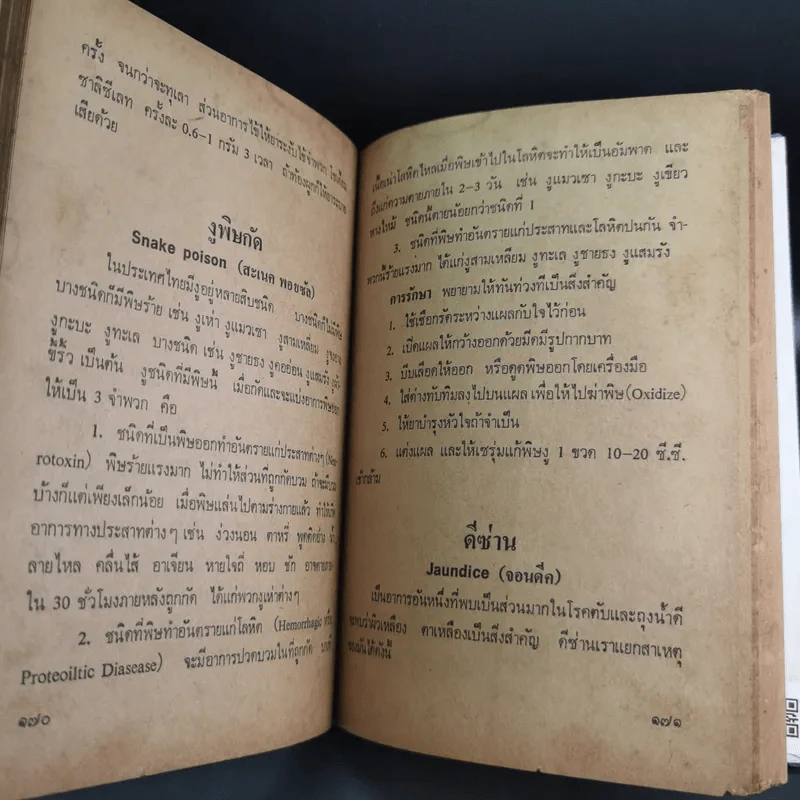 ครั้ง จนกว่าจะทุเลา ส่วนอาการไข้ให้ยาระงับไข้จำพวก โซเดียม
ซาลิซีเลท ครั้งละ 0.6-1 กรัม 3 เวลา ถ้าท้องผูกก็ให้ยาระบาย
เสียด้วย
งูพิษกัด
Snake poison (สะเนค พอยซัล)
ในประเทศไทยมีงูอยู่หลายสิบชนิด บางชนิดก็ไม่มีพิษ
บางชนิดก็มีพิษร้าย เช่น งูเห่า งูแมวเซา งูสามเหลี่ยม
งูกะบะ งูทะเล บางชนิด เช่น งูชายธง งูคออ่อน งูแสมรัง
ขี้ริ้ว เป็นต้น งูชนิดที่มีพิษนี้ เมื่อกัดและจะแบ่งอาการพิษออก
ให้เป็น 3 จำพวก คือ
1. ชนิดที่เป็นพิษออกทำอันตรายแก่ประสาทต่างๆ (Neu-
rotoxin) พิษร้ายแรงมาก ไม่ทำให้ส่วนที่ถูกกัดบวม ถ้าจะมีบวม
บ้างก็แต่เพียงเล็กน้อย เมื่อพิษแล่นไปตามร่างกายแล้ว ทำให้เกิด
อาการทางประสาทต่างๆ เช่น ง่วงนอน ตาหรี่ พูดติดอ่าง น้ำ
ลายไหล คลื่นไส้ อาเจียน หายใจถี่ หอบ ชัก อาจตายภาย
ใน 30 ชั่วโมงภายหลังถูกกัด ได้แก่พวกงูเห่าต่างๆ
2. ชนิดที่พิษทำอันตรายแก่โลหิต (Hemorrhagic หรือ
Proteoiltic Diasease) จะมีอาการปวดบวมในที่ถูกกัด บาดที่
๑๗๐
เนื้อเน่าโลหิตไหลเมื่อพิษเข้าไปในโลหิตจะทำให้เป็นอัมพาต และ
ถึงแก่ความตายภายใน 2-3 วัน เช่น งูแมวเซา งูกะบะ งูเขียว
หางไหม้ ชนิดนี้ตายน้อยกว่าชนิดที่ 1
3. ชนิดที่พิษทำอันตรายแก่ประสาทและโลหิตปนกัน จำ-
พวกนี้ร้ายแรงมาก ได้แก่งูสามเหลี่ยม งูทะเล งูชายธง งูแสมรัง
การรักษา พยายามให้ทันท่วงทีเป็นสิ่งสำคัญ
1. ใช้เชือกรัดระหว่างแผลกับใจไว้ก่อน
2. เปิดแผลให้กว้างออกด้วยมีดมีรูปกากบาท
3. บีบเลือดให้ออก หรือดูดพิษออกโดยเครื่องมือ
4. ใส่ด่างทับทิมลงไปบนแผล เพื่อให้ไปฆ่าพิษ(Oxidize)
5. ให้ยาบำรุงหัวใจถ้าจำเป็น
6. แต่งแผล และให้เซรุ่มแก้พิษงู 1 ขวด 10-20 ซี.ซี.
เข้ากล้าม
ดีซ่าน
Jaundice (จอนดีค)
เป็นอาการอันหนึ่งที่พบเป็นส่วนมากในโรคตับและถุงน้ำดี
จะพบว่าผิวเหลือง ตาเหลืองเป็นสิ่งสำคัญ ดีซ่านเราแยกสาเหตุ
ของมันได้ดังนี้
๑๗๑